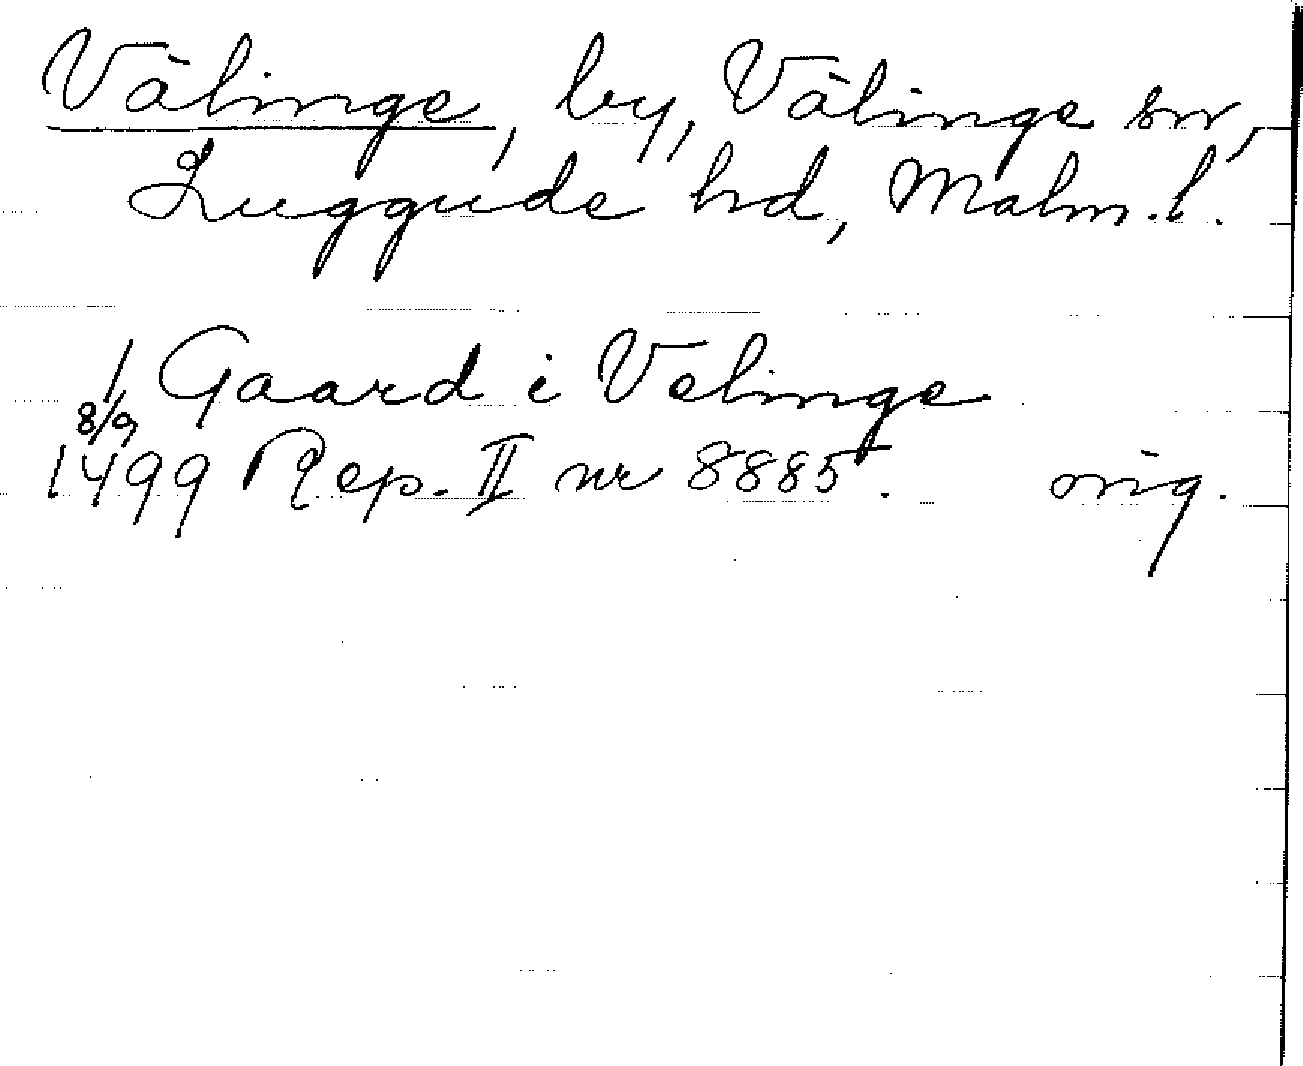 Välinge, by, Välinge sn,
Luggude hd, Malm.l.
1 Gaard i Velinge
8/9
1499 Rep. II nr 8885. orig.